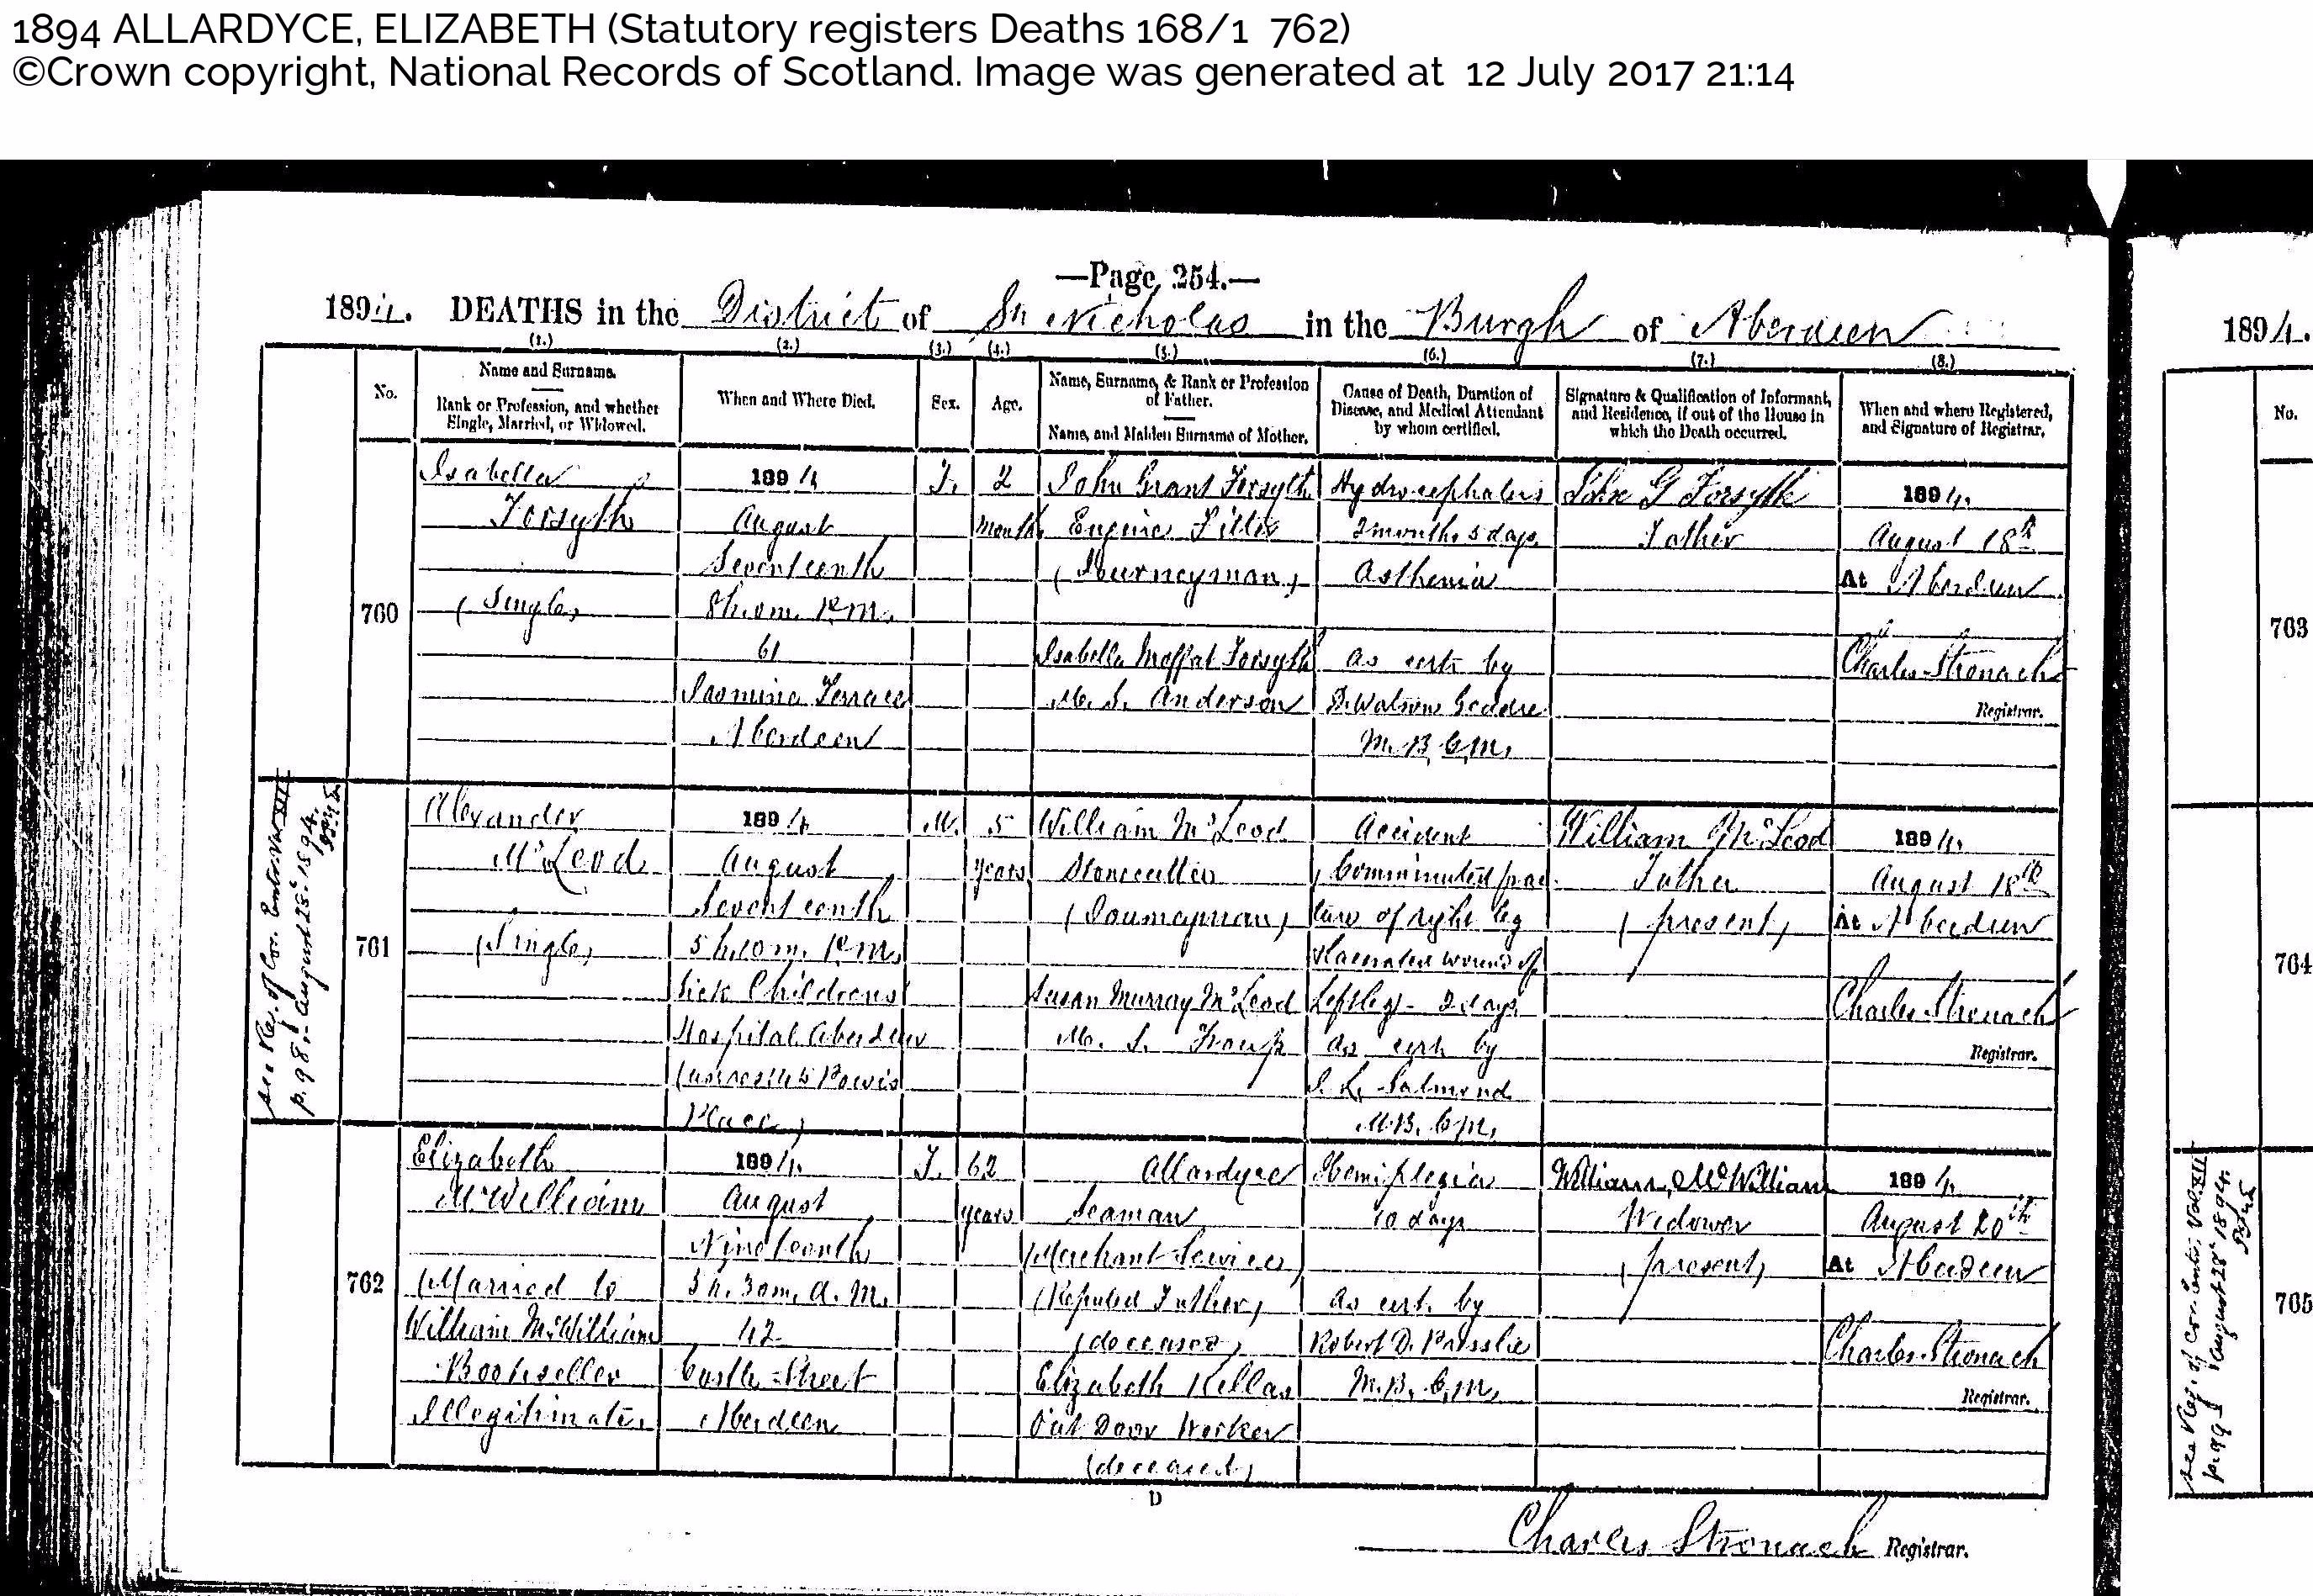 1894 ALLARDYCE, ELIZABETH (Statutory registers Deaths 168/1 762)
©Crown copyright, National Records of Scotland. Image was generated at 12 July 2017 21:14
—Page 254.—
1894. DEATHS in the District of St Nicholas in the Burgh of Aberdeen
(1.) (2.) (3.) (4.) (5.) (6.) (7.) (8.)
No.
Name and Surname.
Rank or Profession, and whether
Single, Married, or Widowed.
When and Where Died.
Sex.
Age.
Name, Surname, & Rank or Profession
of Father.
Name, and Maiden Surname of Mother.
Cause of Death, Duration of
Disease, and Medical Attendant
by whom certified.
Signature & Qualification of Informant,
and Residence, if out of the House in
which the Death occurred.
When and where Registered,
and Signature of Registrar.
760
Isabella
Forsyth
(Single)
1894
August
Seventeenth
8h. 0m. P.M.
61
Jasmine Terrace
Aberdeen
F.
2
months
John Grant Forsyth
Engine Fitter
(Journeyman)
Isabella Moffat Forsyth
M. S. Anderson
Hydrocephalus
2 months 5 days
Asthenia
as cert. by
D. Watson Geddie
M.B. C.M.
John G Forsyth
Father
1894.
August 18th
At Aberdeen
Charles Stronach
Registrar.
see Reg. of Cor. Entries Vol XII
p. 98, August 25th 1894.
761
Alexander
McLeod
(Single)
1894
August
Seventeenth
5h. 10m. P.M.
Sick Childrens'
Hospital Aberdeen
Powis
Place)
M.
5
years
William McLeod
Stonecutter
(Journeyman)
Susan Murray McLeod
M. S. Troup
Accident
Comminuted frac-
ture of right leg
& lacerated wound of
Left leg - 2 days
as cert. by
Salmond
M.B. C.M.
William McLeod
Father
(present)
1894.
August 18th
At Aberdeen
Charles Stronach
Registrar.
762
Elizabeth
McWilliam
(Married to
William McWilliam
Bookseller
Illegitimate)
1894.
August
Nineteenth
3h. 30m. A.M.
42
Castle Street
Aberdeen
F.
62
years
Allardyce
Seaman
(Merchant Service)
(Reputed Father)
(deceased)
Elizabeth Kellas
Out Door Worker
(deceased)
Hemiplegia
10 days
as cert. by
Robert D.
M.B. C.M.
William McWilliam
Widower
(present)
1894.
August 20th
At Aberdeen
Charles Stronach
Registrar.
D
Charles Stronach Registrar.
1894.
No.
763
764
see Reg. of Cor. Ent. Vol. XII
p. 99 August 28th 1894.
765